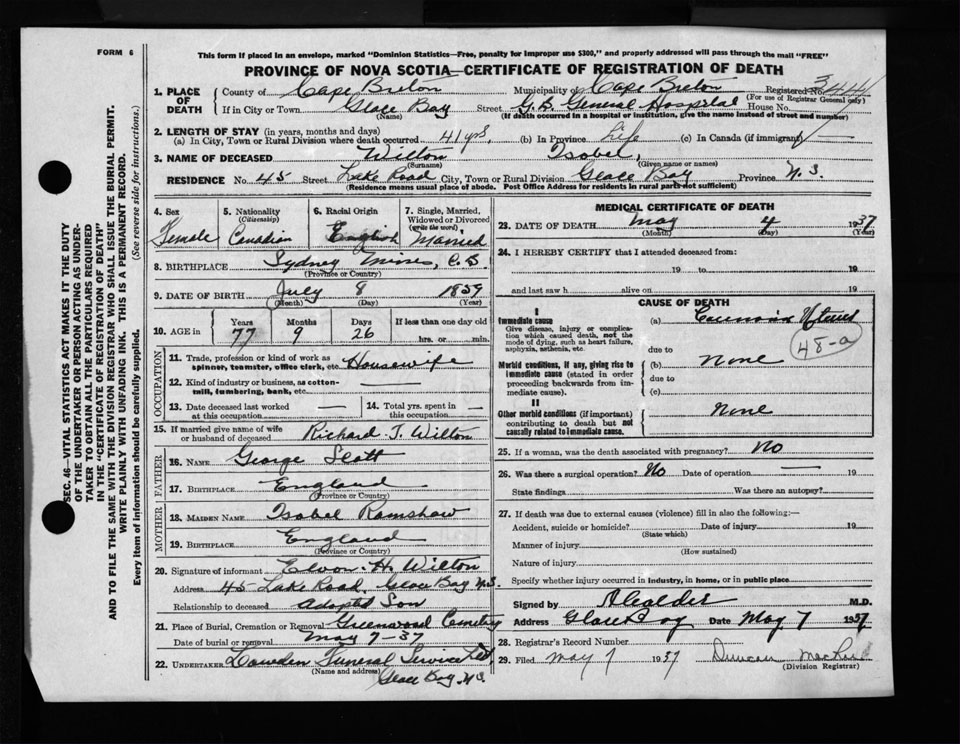 FORM 6
This form if placed in an envelope, marked "Dominion Statistics—Free, penalty for improper use $300," and properly addressed will pass through the mail "FREE"
PROVINCE OF NOVA SCOTIA—CERTIFICATE OF REGISTRATION OF DEATH
1. PLACE OF DEATH
County of Cape Breton Municipality of Cape Breton Registered No. 344
(For use of Registrar General only)
If in City or Town Glace Bay Street G.B. General Hospital House No.
(Name) (If death occurred in a hospital or institution, give the name instead of street and number)
2. LENGTH OF STAY (in years, months and days)
(a) In City, Town or Rural Division where death occurred 41 yrs. (b) In Province Life (c) In Canada (if immigrant) —
3. NAME OF DECEASED Wilton Isobel,
(Surname) (Given name or names)
RESIDENCE No. 45 Street Lake Road City, Town or Rural Division Glace Bay Province N.S.
(Residence means usual place of abode. Post Office Address for residents in rural parts not sufficient)
4. Sex
Female
5. Nationality
(Citizenship)
Canadian
6. Racial Origin
English
7. Single, Married, Widowed or Divorced
(write the word)
Married
8. BIRTHPLACE Sydney Mines, C.B.
(Province or Country)
9. DATE OF BIRTH July 8 1859
(Month) (Day) (Year)
10. AGE in Years Months Days If less than one day old
77 9 26 hrs. or min.
OCCUPATION
11. Trade, profession or kind of work as spinner, teamster, office clerk, etc. Housewife
12. Kind of industry or business, as cotton-mill, lumbering, bank, etc. —
13. Date deceased last worked at this occupation —
14. Total yrs. spent in this occupation —
15. If married give name of wife or husband of deceased Richard J. Wilton
FATHER
16. NAME George Scott
17. BIRTHPLACE England
(Province or Country)
MOTHER
18. MAIDEN NAME Isobel Ramshaw
19. BIRTHPLACE England
(Province or Country)
20. Signature of informant H. Wilton
Address 45 Lake Road, Glace Bay N.S.
Relationship to deceased Adopted Son
21. Place of Burial, Cremation or Removal Greenwood Cemetery
Date of burial or removal May 7-37
22. UNDERTAKER Funeral Service Ltd
(Name and address)
Glace Bay, N.S.
MEDICAL CERTIFICATE OF DEATH
23. DATE OF DEATH May 4 1937
(Month) (Day) (Year)
24. I HEREBY CERTIFY that I attended deceased from:
19 to 19
and last saw h alive on 19
CAUSE OF DEATH
I
Immediate cause
Give disease, injury or complication which caused death, not the mode of dying, such as heart failure, asphyxia, asthenia, etc.
(a) Uterus
48-a
Morbid conditions, if any, giving rise to immediate cause (stated in order proceeding backwards from immediate cause).
due to
(b) None
due to
(c)
II
Other morbid conditions (if important) contributing to death but not causally related to immediate cause.
None
25. If a woman, was the death associated with pregnancy? No
26. Was there a surgical operation? No Date of operation — 19
State findings Was there an autopsy?
27. If death was due to external causes (violence) fill in also the following:—
Accident, suicide or homicide? Date of injury 19
(State which)
Manner of injury
(How sustained)
Nature of injury
Specify whether injury occurred in industry, in home, or in public place
Signed by M.D.
Address Glace Bay Date May 7 1937
28. Registrar's Record Number
29. Filed May 7 1937 Duncan
(Division Registrar)
SEC. 46—VITAL STATISTICS ACT MAKES IT THE DUTY
OF THE UNDERTAKER OR PERSON ACTING AS UNDER-
TAKER TO OBTAIN ALL THE PARTICULARS REQUIRED
IN THE "CERTIFICATE OF REGISTRATION OF DEATH"
AND TO FILE THE SAME WITH THE DIVISION REGISTRAR WHO SHALL ISSUE THE BURIAL PERMIT.
WRITE PLAINLY WITH UNFADING INK. THIS IS A PERMANENT RECORD.
Every item of information should be carefully supplied. (See reverse side for instructions.)